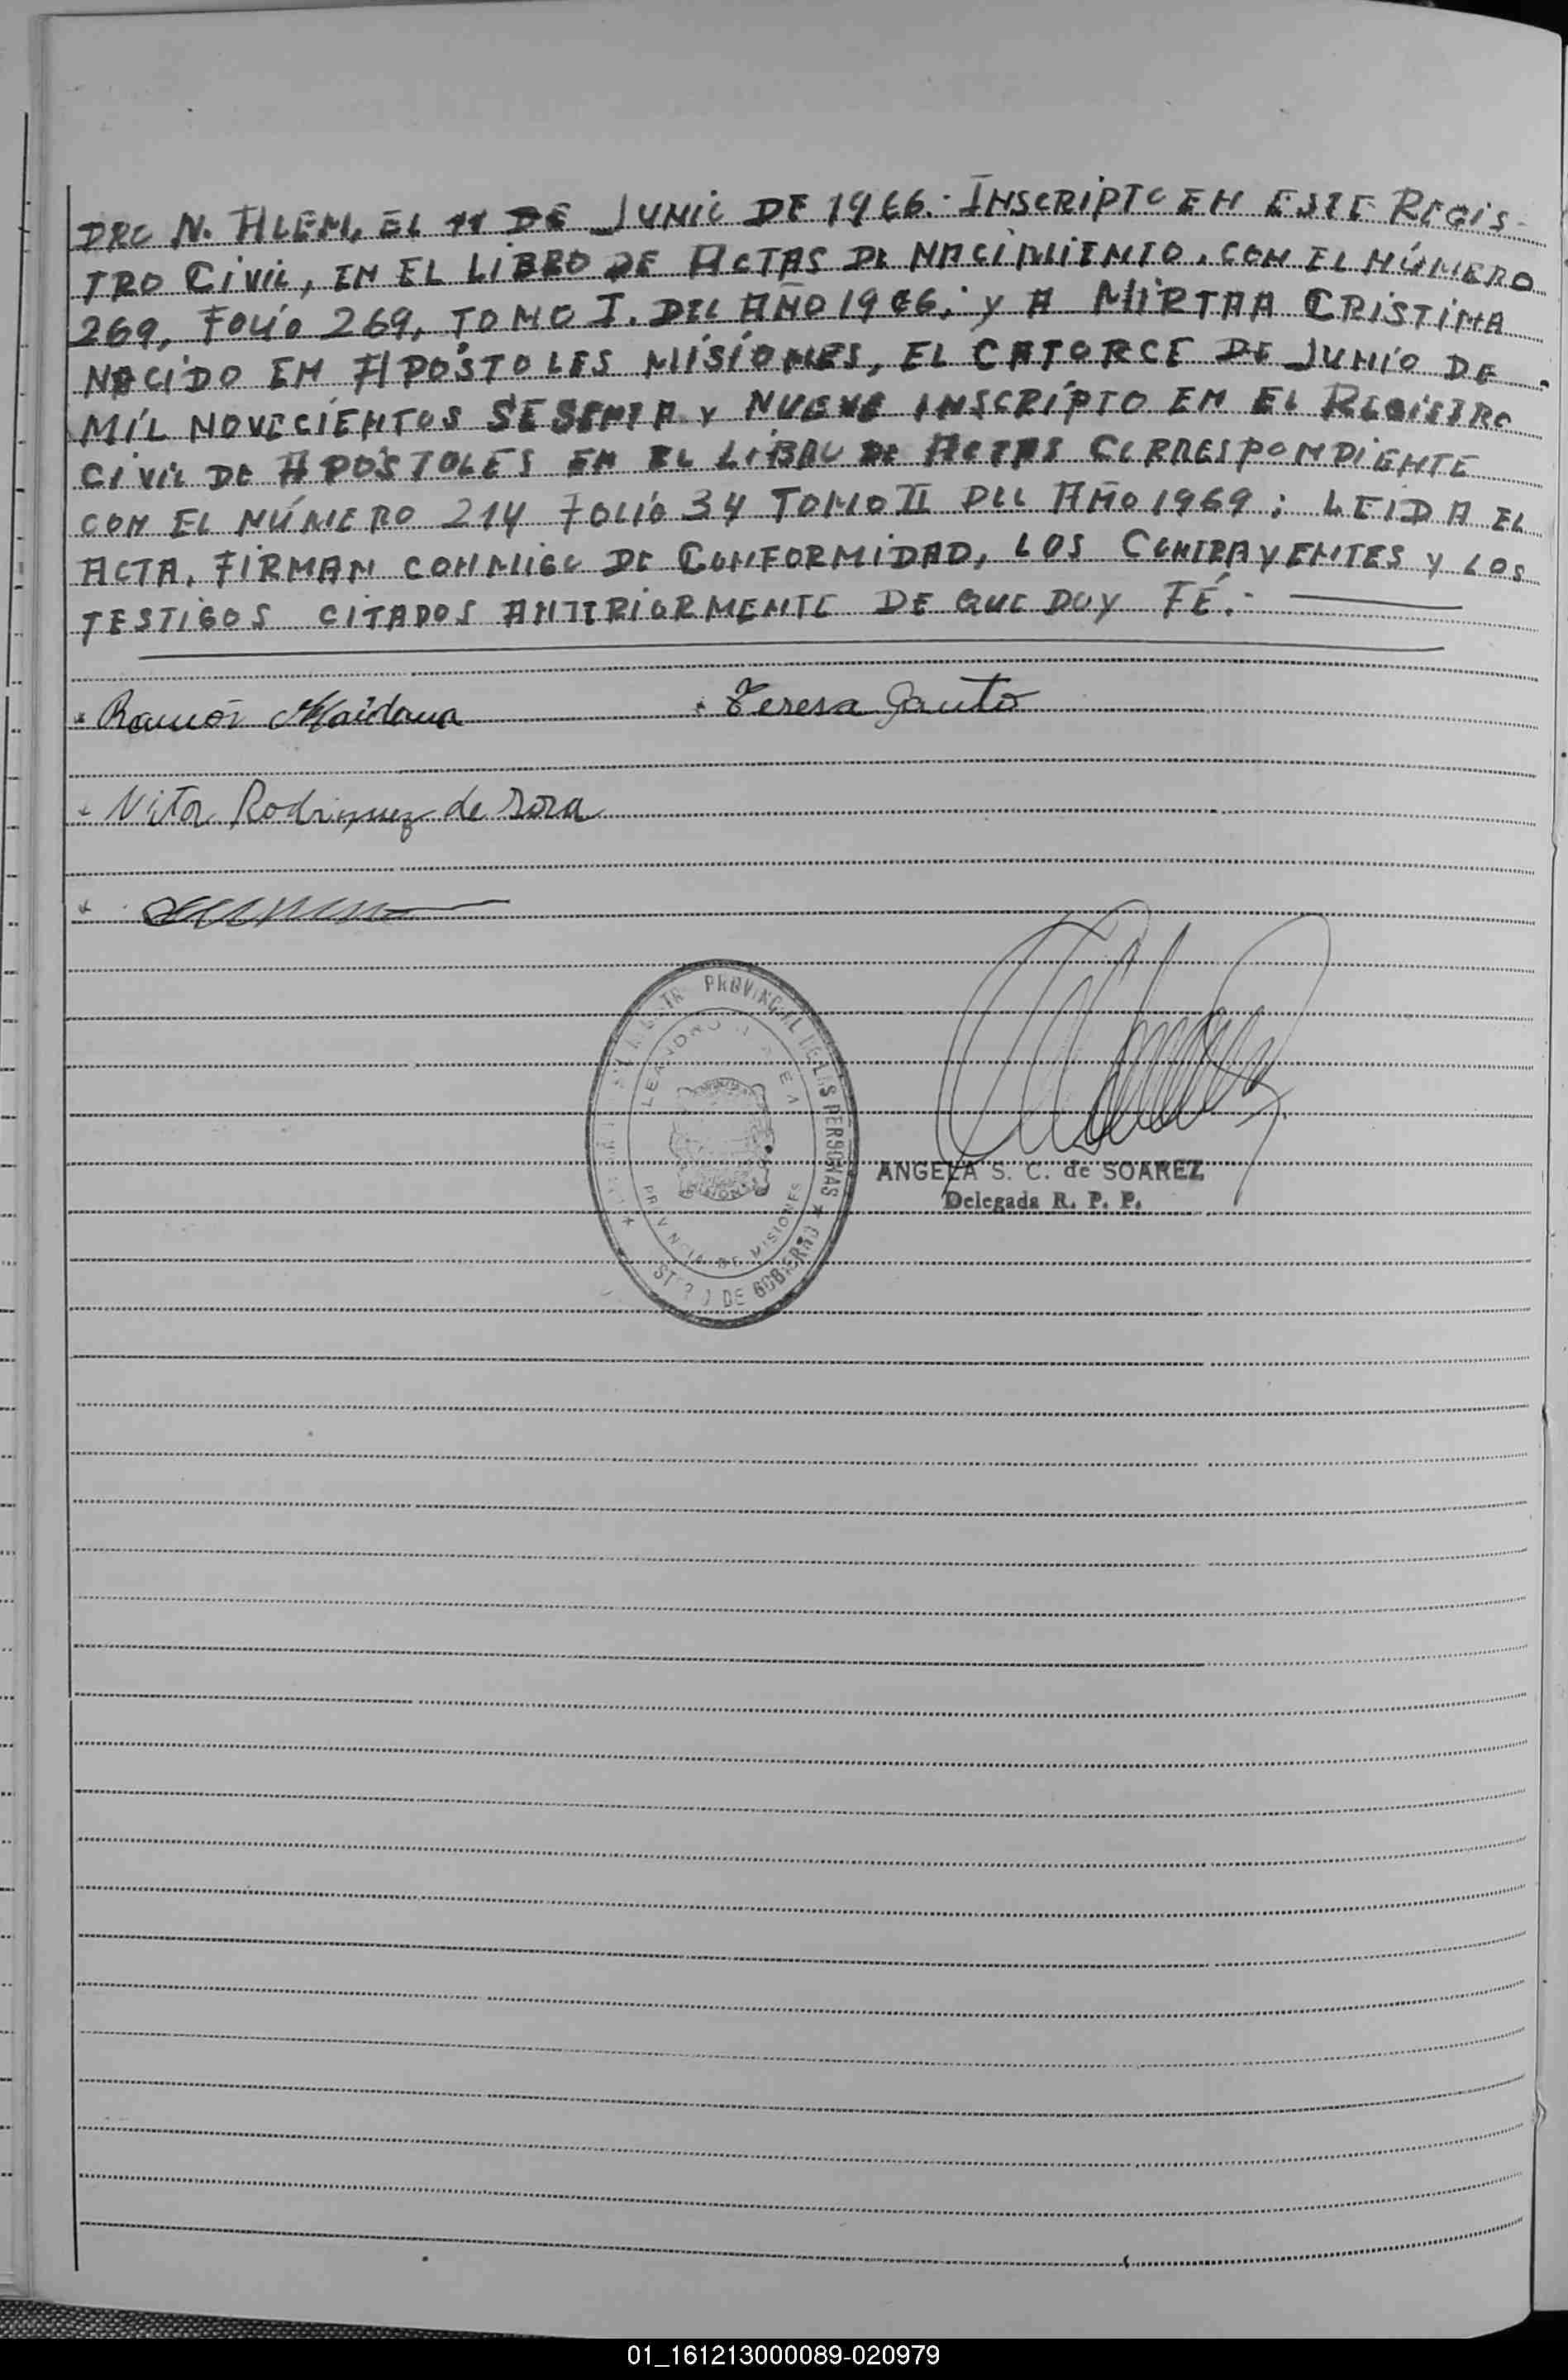 DRO N. ALEM, EL 11 DE JUNIO DE 1966.- INSCRIPTO EN ESTE REGIS-
TRO CIVIL, EN EL LIBRO DE ACTAS DE NACIMIENTO, CON EL NÚMERO
269, FOLIO 269, TOMO I. DEL AÑO 1966; Y A MIRTAA CRISTINA
NACIDO EN APÓSTOLES MISIONES, EL CATORCE DE JUNIO DE
MIL NOVECIENTOS SESENTA Y NUEVE INSCRIPTO EN EL REGISTRO
CIVIL DE APÓSTOLES EN EL LIBRO DE ACTAS CORRESPONDIENTE
CON EL NÚMERO 214 FOLIO 34 TOMO II DEL AÑO 1969; LEIDA EL
ACTA, FIRMAN CONMIGO DE CONFORMIDAD, LOS CONTRAYENTES Y LOS
TESTIGOS CITADOS ANTERIORMENTE DE QUE DOY FÉ.-
Ramón Maidana Teresa Gauto
Nitor Rodriguez de
PROVINCIAL DE LAS PERSONAS
LEANDRO N. ALEM
PROVINCIA DE MISIONES
DE GOBIERNO
ANGELA S. C. de SOAREZ
Delegada R. P. P.
01_161213000089-020979